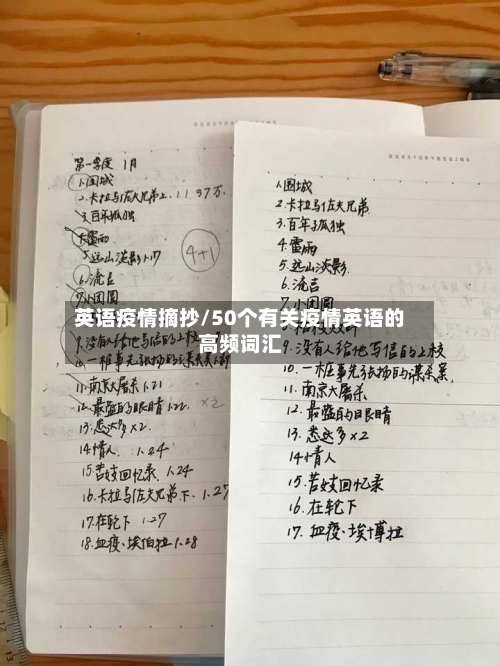 QUESTORYBEGINS
第一季度 1月
1.围城
2.卡拉马佐夫兄弟上. 1.1 37万.
3.百年孤独
4.雷雨
5.远山淡影 1.17
4+1
6.流言
7.小团圆
9.没有人给他写信的上校
10.一桩事先张扬的谋杀案
11.南京大屠杀 1.21
12.最蓝的眼睛 1.22. ×2
13.悉达多×2.
14情人. 1.24
15苦妓回忆录. 1.24
16.卡拉马佐夫兄弟下. 1.27
17.在轮下 1.27
18.血疫·埃伯拉 1.28
QUESTORYBEGINS
1.围城
2.卡拉马佐夫兄弟
3.百年孤独
4.雷雨
5.远山淡影.
6.流言
7.小团圆
9.没有人给他写信的上校
10.一桩事先张扬的谋杀案.
11.南京大屠杀
12.最蓝的眼睛
13.悉达多×2
14情人
15.苦妓回忆录
16.在轮下
17.血疫·埃博拉
英语疫情摘抄/50个有关疫情英语的
高频词汇